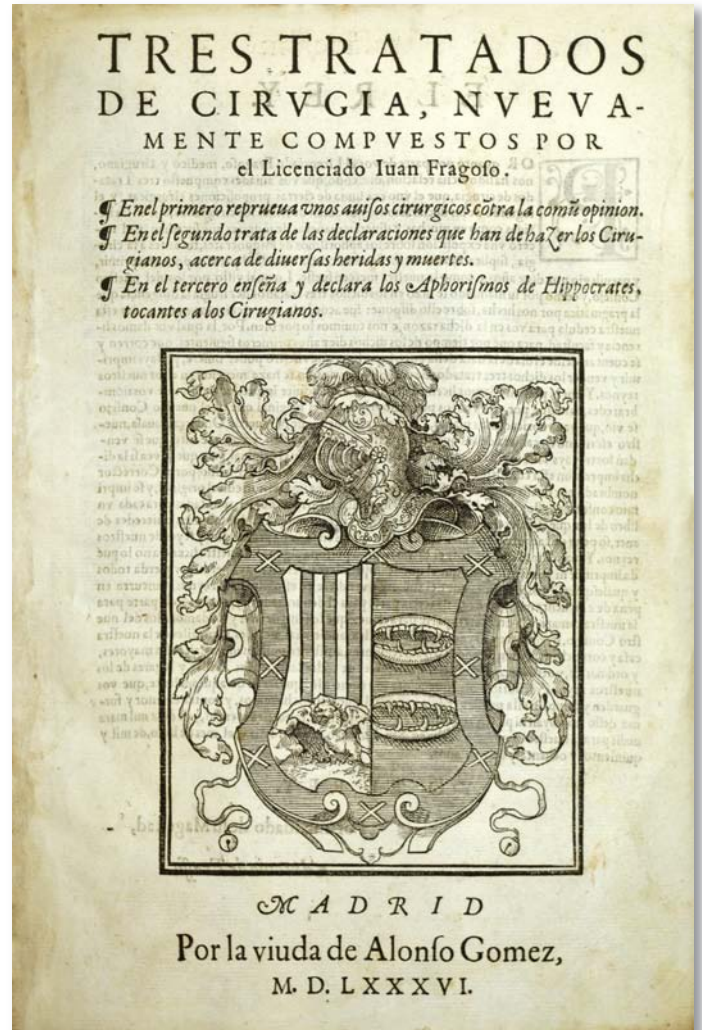 TRES TRATADOS
DE CIRVGIA, NVEVA-
MENTE COMPVESTOS POR
el Licenciado Iuan Fragoſo.
¶ Enel primero reprueua vnos auiſos cirurgicos cõtra la comũ opinion.
¶ En el ſegundo trata de las declaraciones que han de hazer los Ciru-
gianos, acerca de diuerſas heridas y muertes.
¶ En el tercero enſeña y declara los Aphoriſmos de Hippocrates,
tocantes a los Cirugianos.
MADRID
Por la viuda de Alonſo Gomez,
M. D. LXXXVI.